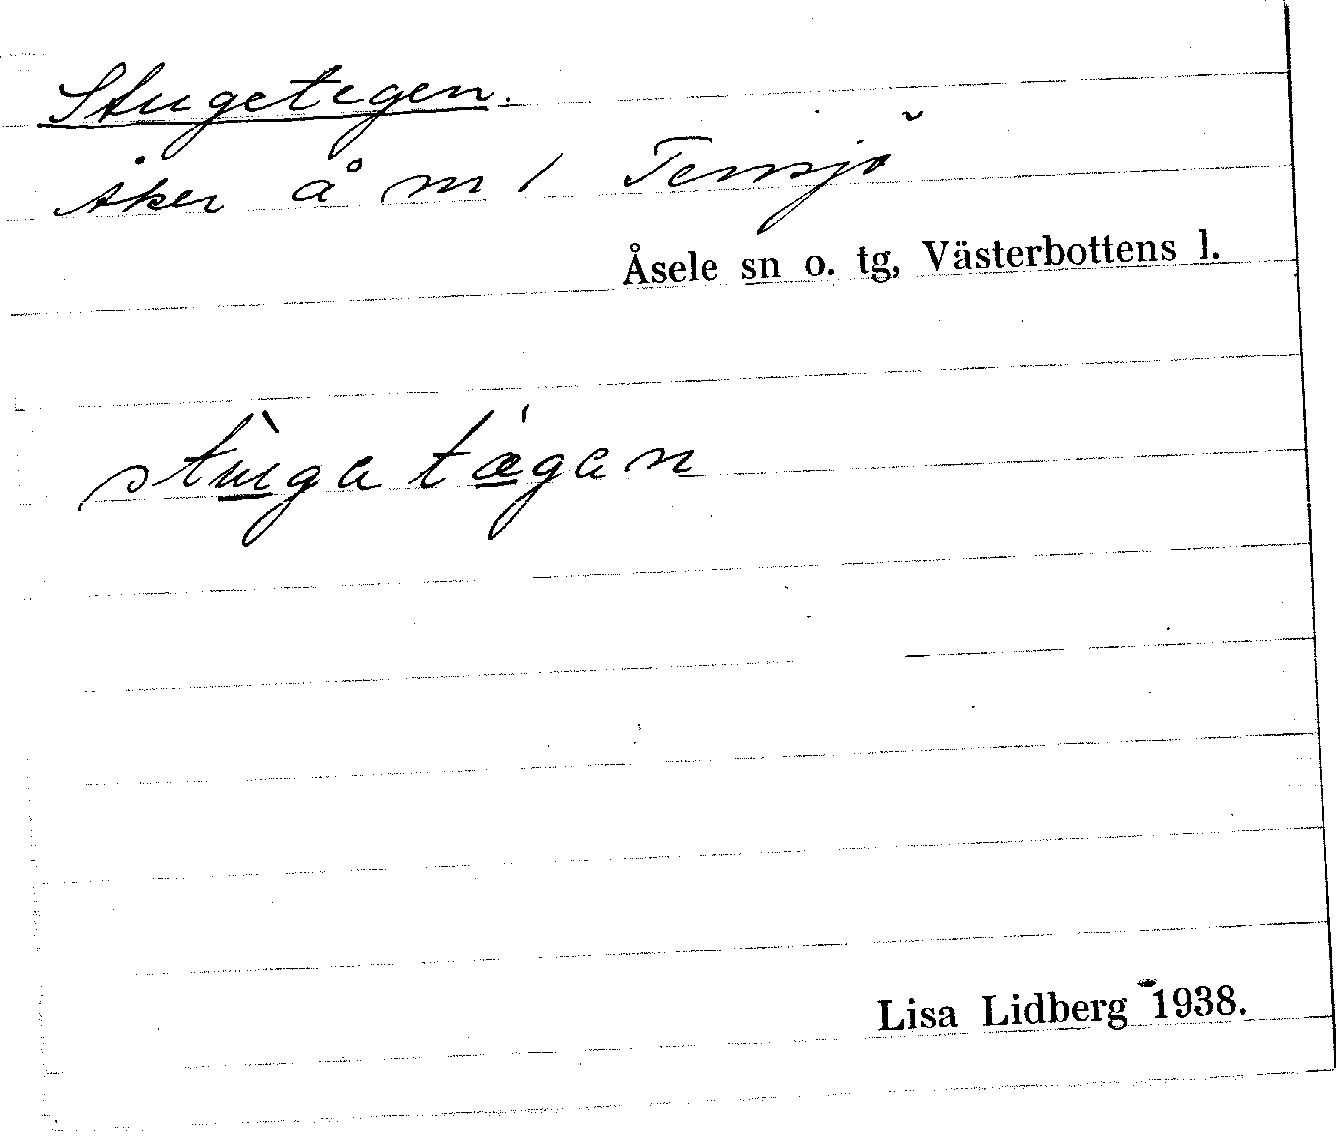 Stugetegen.
Åker å m 1 Temsjö
Åsele sn o. tg, Västerbottens l.
stùga tǽgan
Lisa Lidberg 1938.